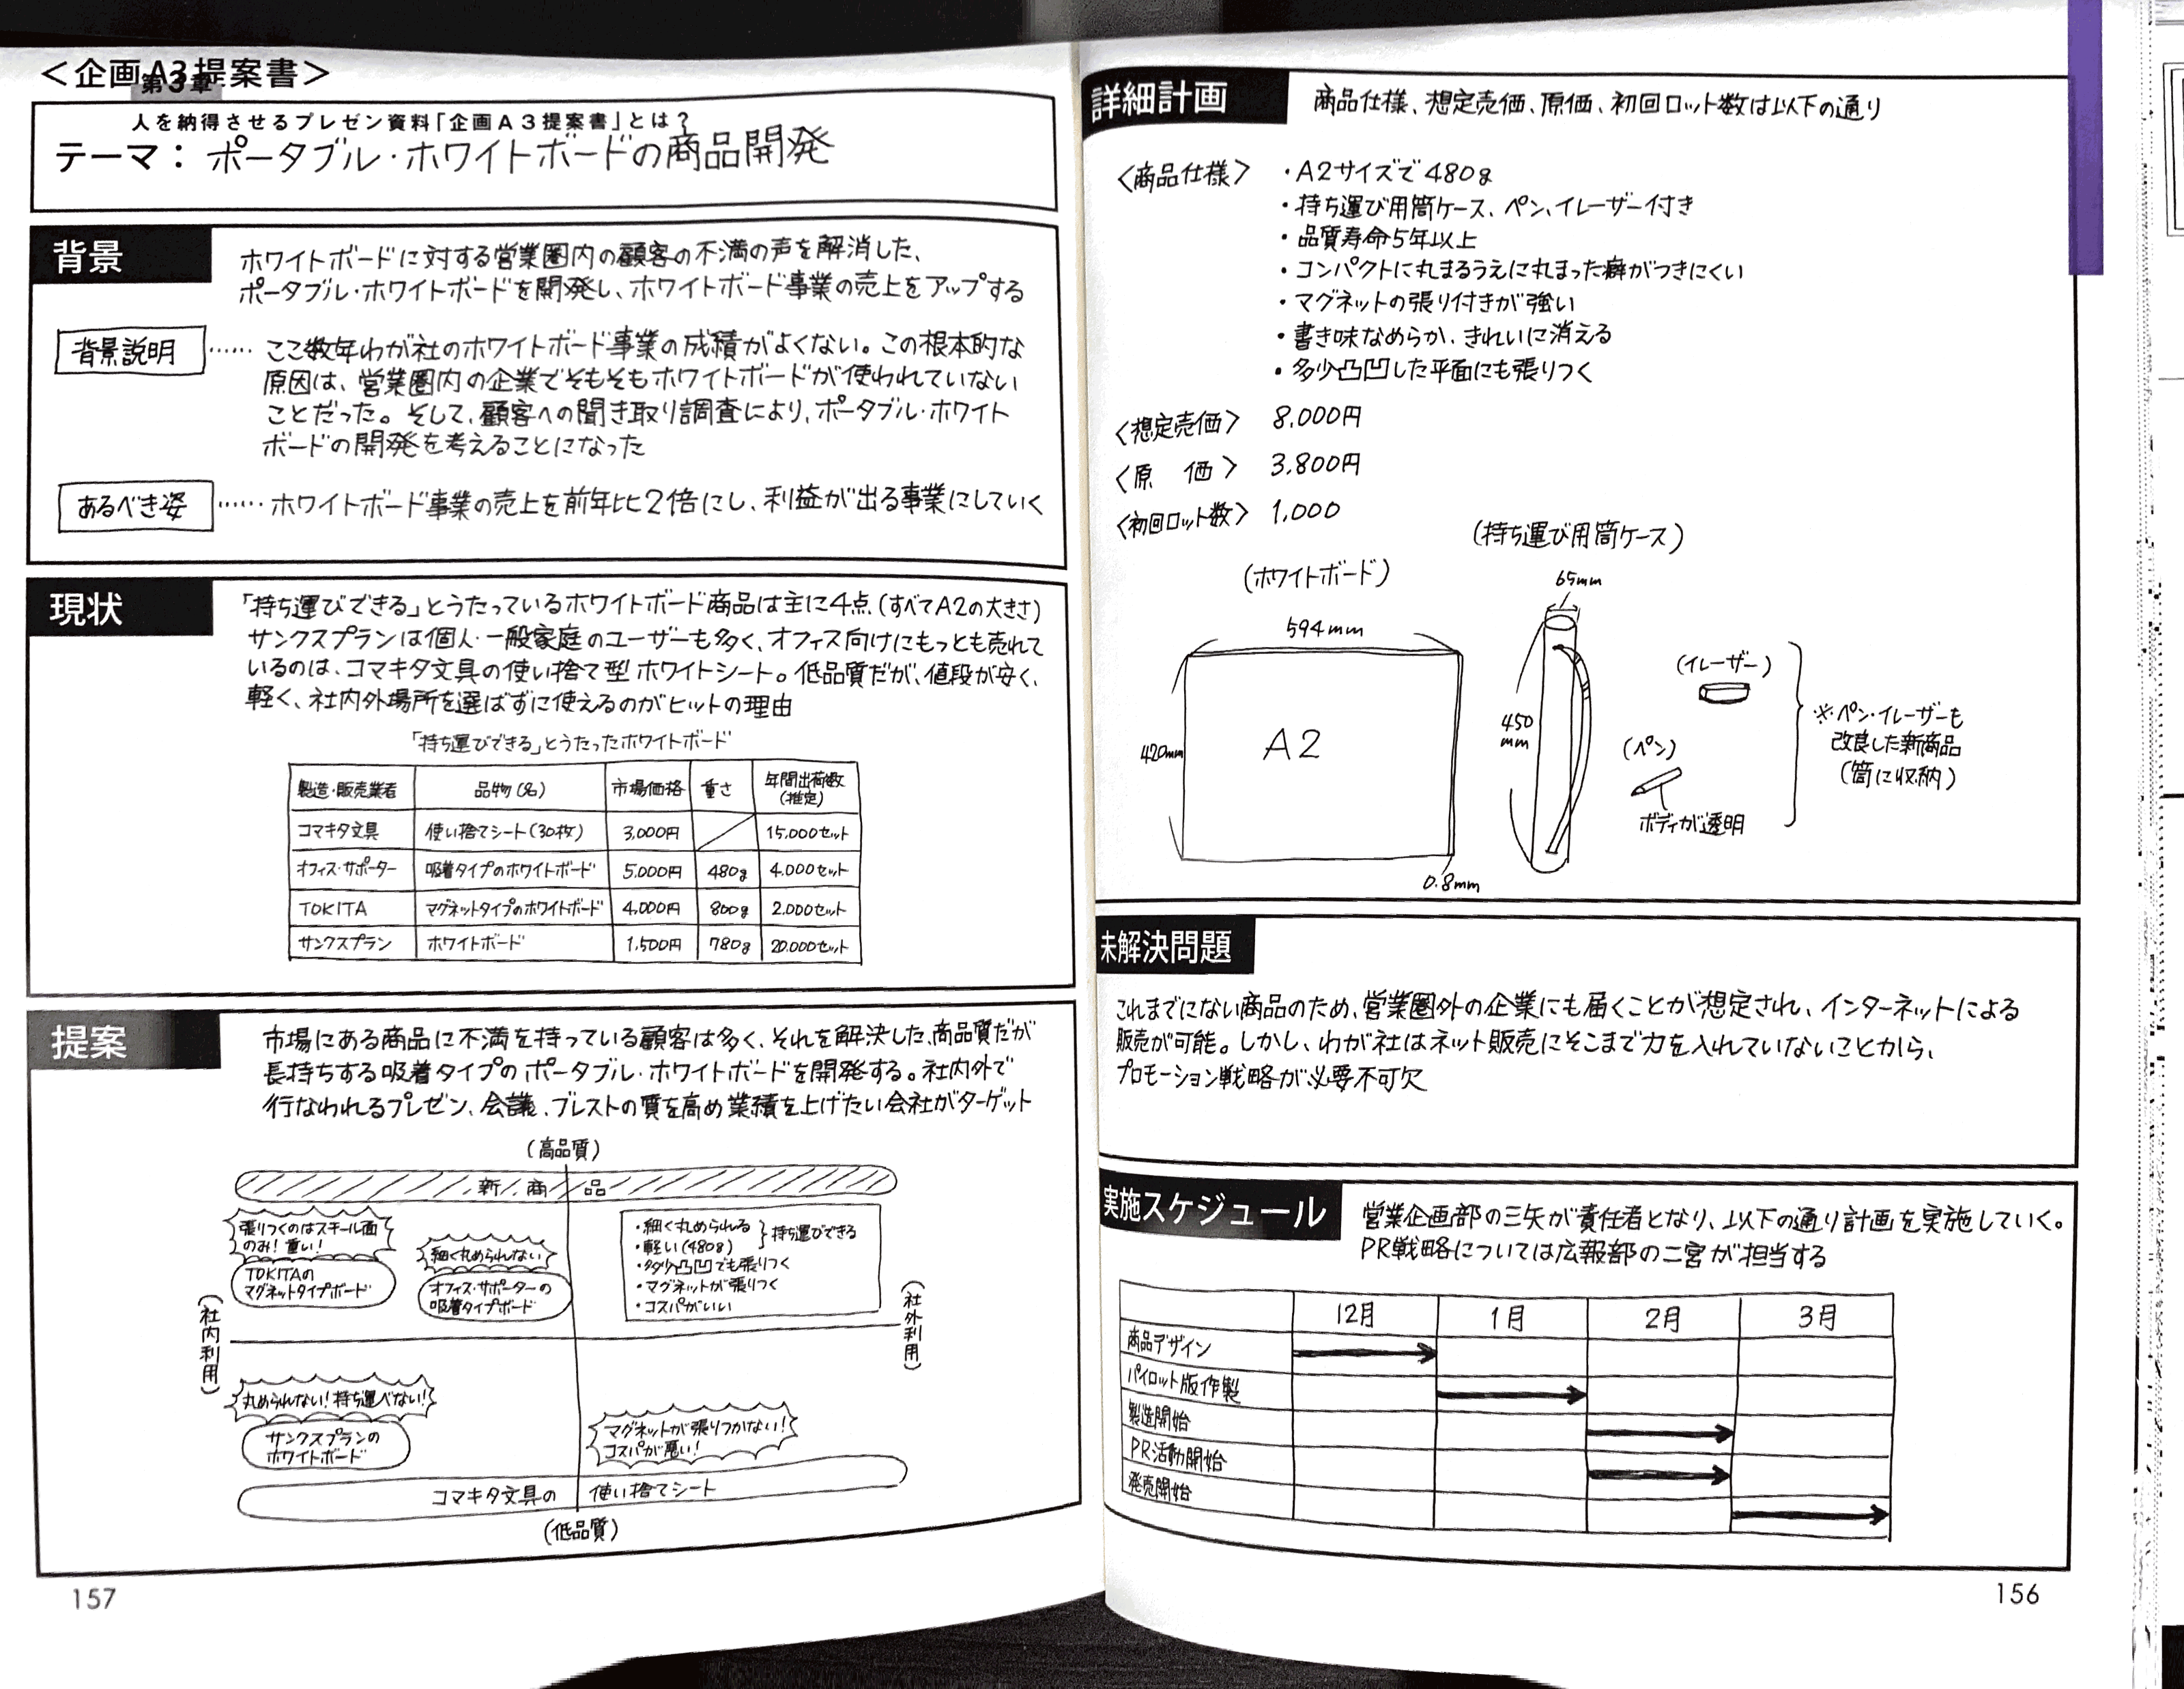 <企画A3提案書>
第3章
人を納得させるプレゼン資料「企画A3提案書」とは?
テーマ:ポータブル・ホワイトボードの商品開発
背景
ホワイトボードに対する営業圏内の顧客の不満の声を解消した、
ポータブル・ホワイトボードを開発し、ホワイトボード事業の売上をアップする
背景説明……ここ数年わが社のホワイトボード事業の成績がよくない。この根本的な
原因は、営業圏内の企業でそもそもホワイトボードが使われていない
ことだった。そして、顧客への聞き取り調査により、ポータブル・ホワイト
ボードの開発を考えることになった
あるべき姿……ホワイトボード事業の売上を前年比2倍にし、利益が出る事業にしていく
現状
「持ち運びできる」とうたっているホワイトボード商品は主に4点(すべてA2の大きさ)
サンクスプランは個人・一般家庭のユーザーも多く、オフィス向けにもっとも売れて
いるのは、コマキタ文具の使い捨て型ホワイトシート。低品質だが、値段が安く、
軽く、社内外場所を選ばずに使えるのがヒットの理由
「持ち運びできる」とうたったホワイトボード
製造・販売業者 品物(名) 市場価格 重さ 年間出荷数(推定)
コマキタ文具 使い捨てシート(30枚) 3,000円 15,000セット
オフィス・サポーター 吸着タイプのホワイトボード 5,000円 480g 4,000セット
TOKITA マグネットタイプのホワイトボード 4,000円 800g 2,000セット
サンクスプラン ホワイトボード 1,500円 780g 20,000セット
提案
市場にある商品に不満を持っている顧客は多く、それを解決した、商品質だが
長持ちする吸着タイプのポータブル・ホワイトボードを開発する。社内外で
行なわれるプレゼン、会議、ブレストの質を高め業績を上げたい会社がターゲット
(高品質)
新商品
張りつくのはスチール面
のみ!重い!
TOKITAの
マグネットタイプボード
細く丸められない
オフィス・サポーターの
吸着タイプボード
・細く丸められる
・軽い(480g)
持ち運びできる
・多少凸凹でも張りつく
・マグネットが張りつく
・コスパがいい
(社内利用)
(社外利用)
丸められない!持ち運べない!
サンクスプランの
ホワイトボード
マグネットが張りつかない!
コスパが悪い!
コマキタ文具の使い捨てシート
(低品質)
157
詳細計画
商品仕様、想定売価、原価、初回ロット数は以下の通り
〈商品仕様〉・A2サイズで480g
・持ち運び用筒ケース、ペン、イレーザー付き
・品質寿命5年以上
・コンパクトに丸まるうえに丸まった癖がつきにくい
・マグネットの張り付きが強い
・書き味なめらか、きれいに消える
・多少凸凹した平面にも張りつく
〈想定売価〉8,000円
〈原 価〉3,800円
〈初回ロット数〉1,000
(持ち運び用筒ケース)
(ホワイトボード)
65mm
594mm
420mm
A2
0.8mm
450
mm
(イレーザー)
(ペン)
ボディが透明
※ペン・イレーザーも
改良した新商品
(筒に収納)
未解決問題
これまでにない商品のため、営業圏外の企業にも届くことが想定され、インターネットによる
販売が可能。しかし、わが社はネット販売にそこまで力を入れていないことから、
プロモーション戦略が必要不可欠
実施スケジュール
営業企画部の三矢が責任者となり、以下の通り計画を実施していく。
PR戦略については広報部の二宮が担当する
12月 1月 2月 3月
商品デザイン
パイロット版作製
製造開始
PR活動開始
発売開始
156